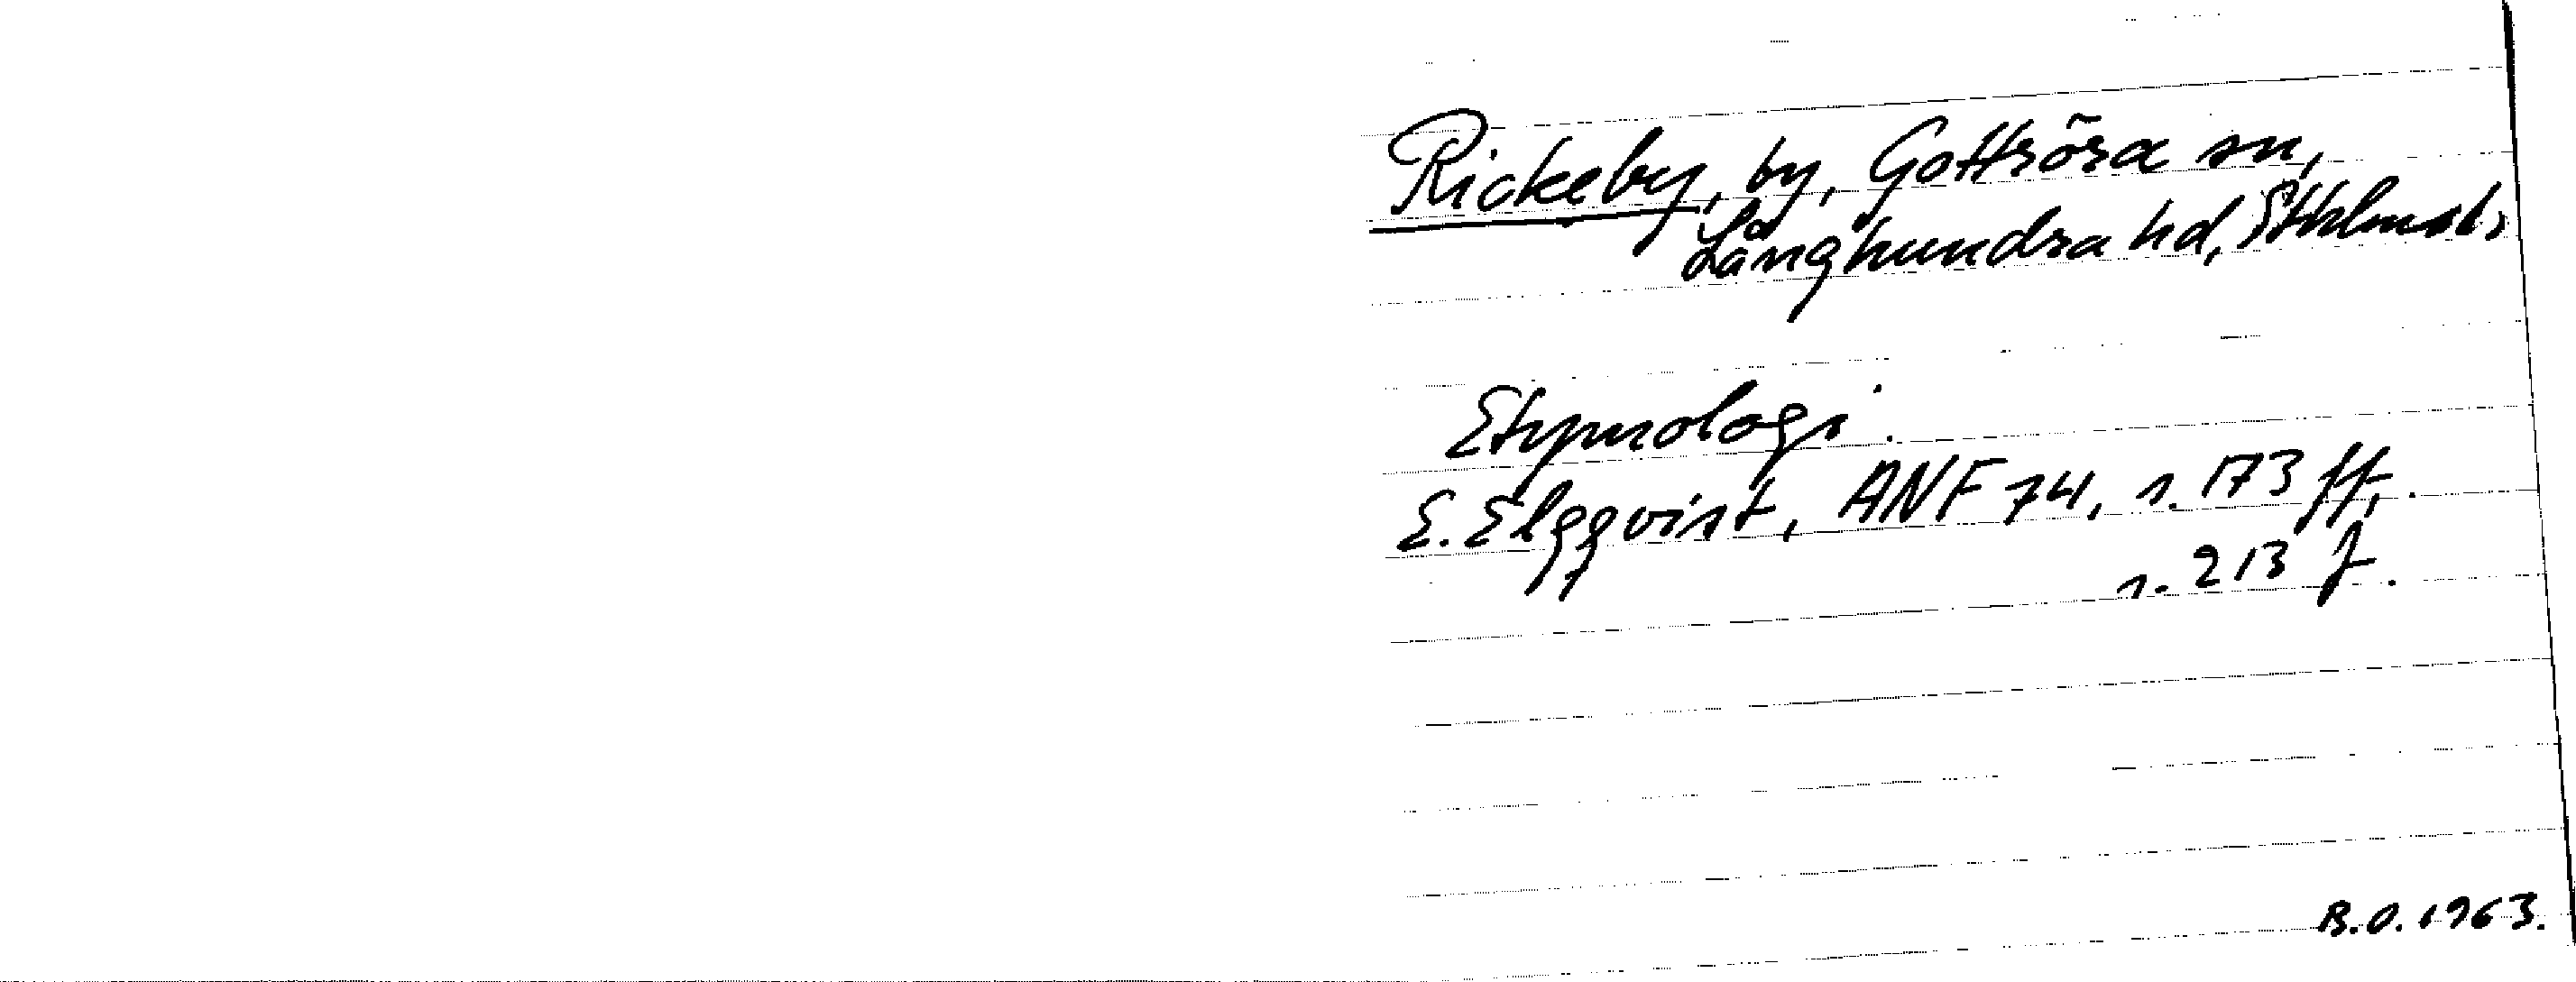 Rickeby, by, Gottröra sn,
Långhundra hd, Sthlms l.
Etymologi.
E. Elgqvist, ANF 74, s. 173 ff.
s. 213 f.
B.O. 1963.